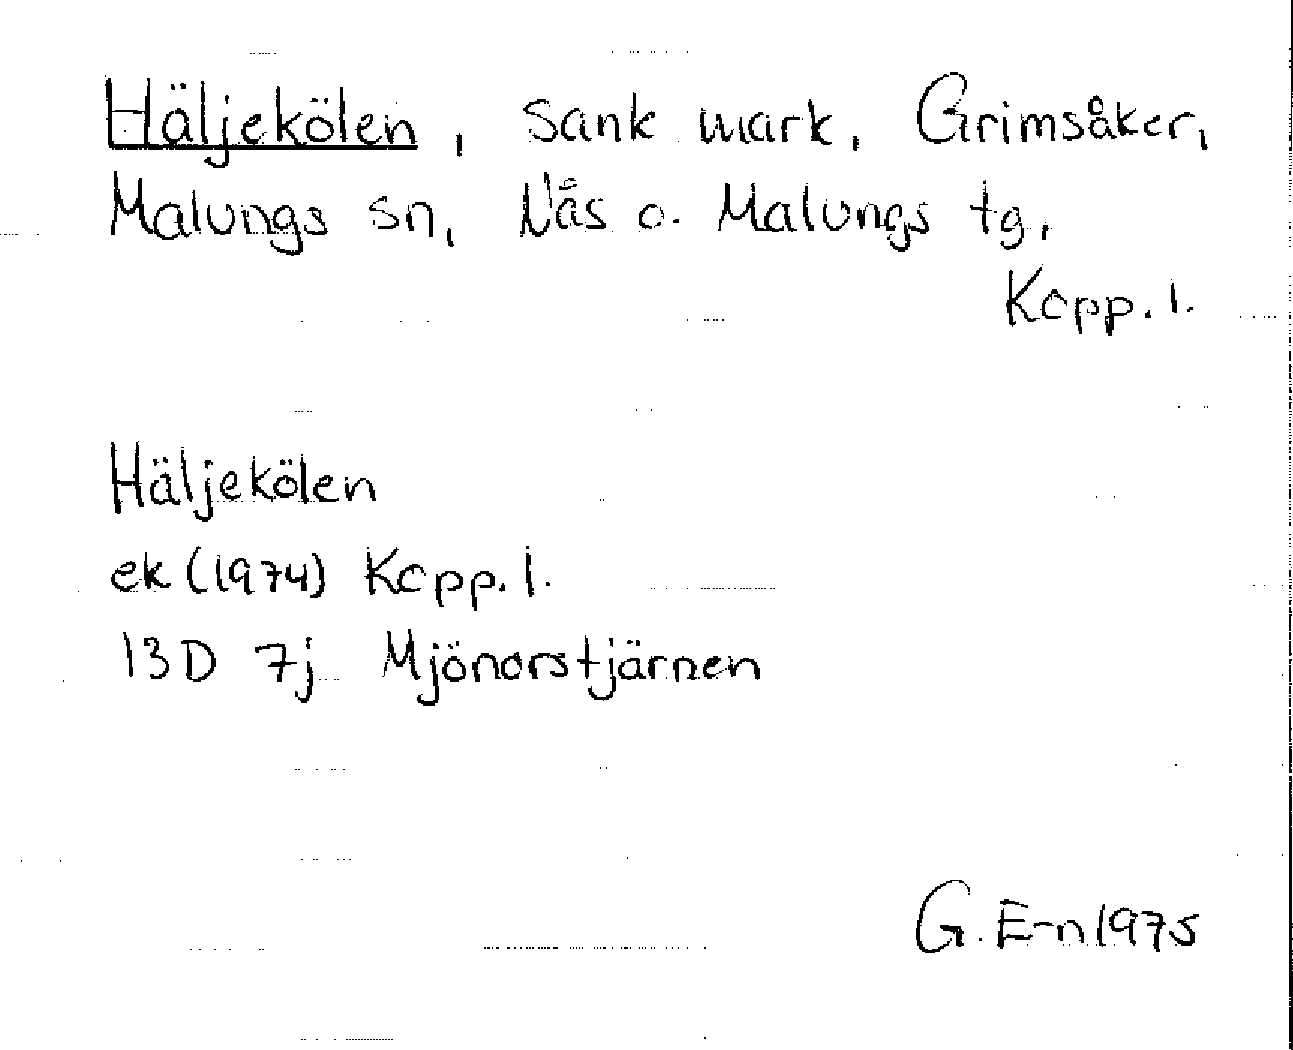 Häljekölen, sank mark, Grimsåker,
Malungs sn, Nås o. Malungs tg,
Kopp. l.
Häljekölen
ek (1974) Kopp. l.
13D 7j Mjönorstjärnen
G. E-n 1975